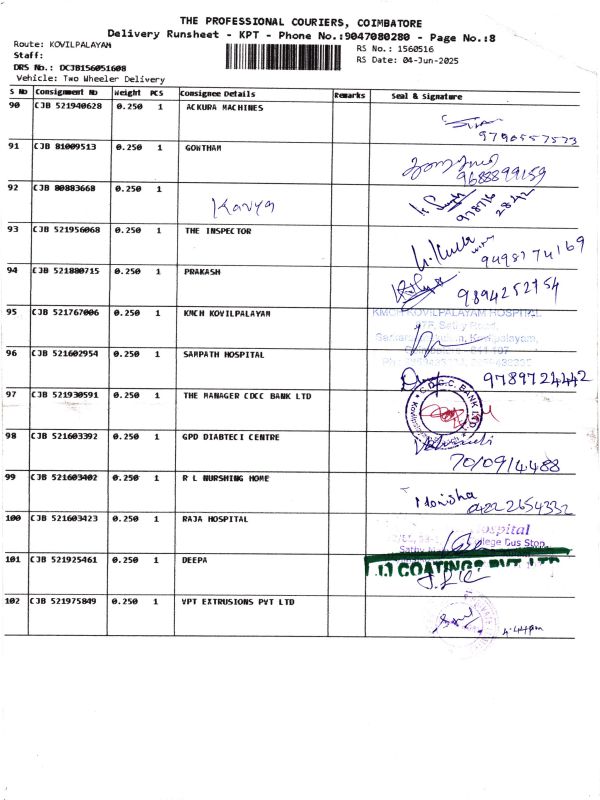 THE PROFESSIONAL COURIERS, COIMBATORE
Delivery Runsheet - KPT - Phone No.:9047080280 - Page No.:8
Route: KOVILPALAYAM
RS No.: 1560516
Staff:
RS Date: 04-Jun-2025
DRS No.: DCJB156051608
Vehicle: Two Wheeler Delivery
S No Consignment No Weight PCS Consignee Details Remarks Seal & Signature
90 CJB 521940628 0.250 1 ACKURA MACHINES
9790557573
91 CJB 81009513 0.250 1 GOWTHAM
9688899159
92 CJB 80883668 0.250 1
Kavya
978716
2842
93 CJB 521956068 0.250 1 THE INSPECTOR
9498174169
94 CJB 521880715 0.250 1 PRAKASH
9894252954
95 CJB 521767006 0.250 1 KMCH KOVILPALAYAM
KMCH KOVILPALAYAM HOSPITAL
Sathy Road,
Kovilpalayam,
96 CJB 521602954 0.250 1 SAMPATH HOSPITAL
9789724442
97 CJB 521930591 0.250 1 THE MANAGER CDCC BANK LTD
C.D.C.C. BANK LTD
98 CJB 521603392 0.250 1 GPD DIABTECI CENTRE
70/0914488
99 CJB 521603402 0.250 1 R L NURSHING HOME
Monisha
0422 2654332
100 CJB 521603423 0.250 1 RAJA HOSPITAL
Hospital
College Bus Stop,
Sathy
101 CJB 521925461 0.250 1 DEEPA
COATINGS PVT LTD
102 CJB 521975849 0.250 1 VPT EXTRUSIONS PVT LTD
4.44pm